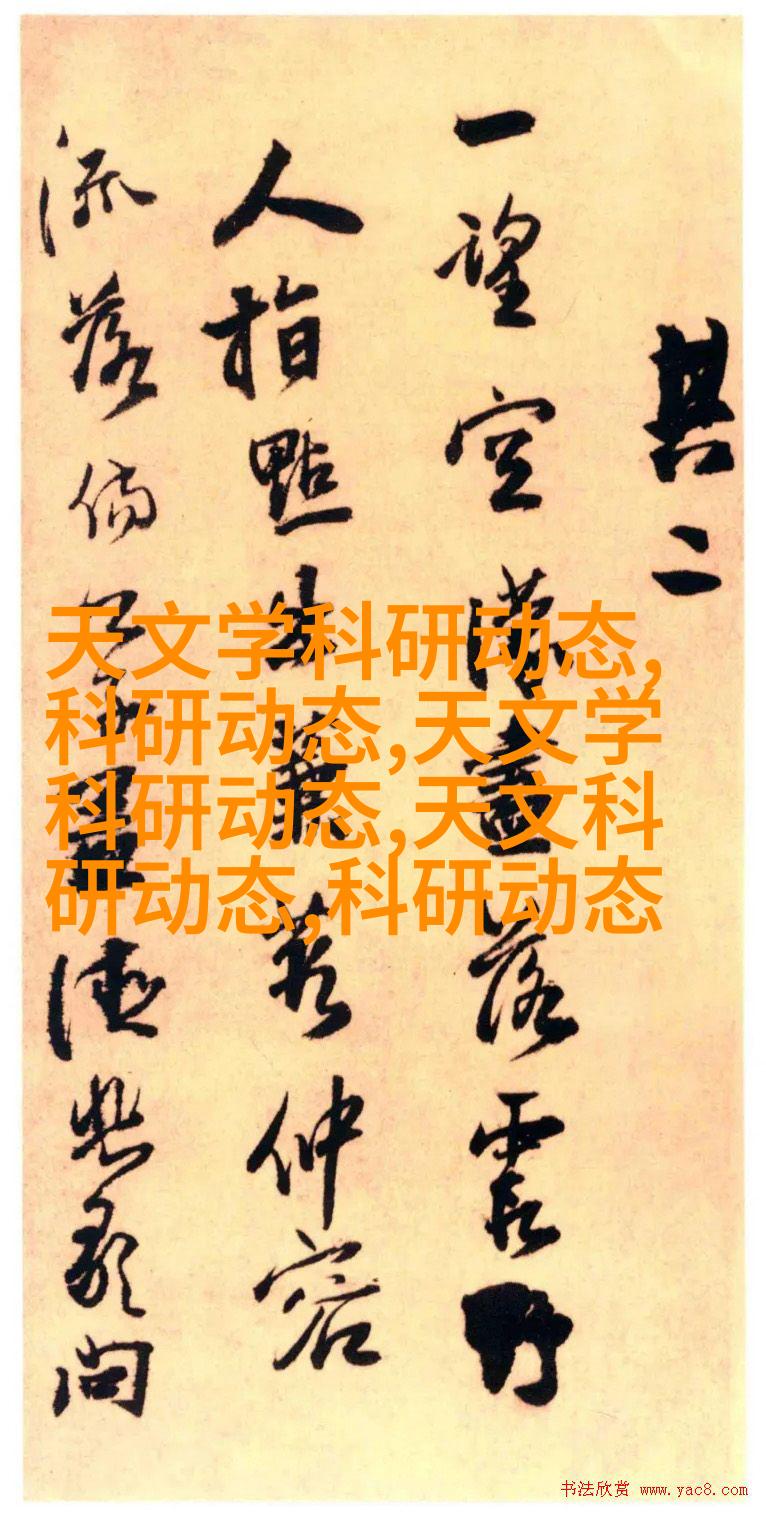 其二
一望空濛盡落霞野
人指點是蘿若仲容
流落傷
德與歌問
天文学科研动态,
科研动态,天文学
科研动态,天文科
研动态,科研动态
书法欣赏 www.yac8.com